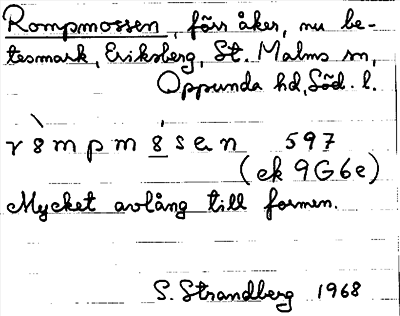 Rompmossen, förr åker, nu be-
tesmark, Eriksberg, St. Malms sn,
Oppunda hd, Söd. l.
r8̀mpm8́sen 597
(ek 9G6e)
Mycket avlång till formen.
S. Strandberg 1968